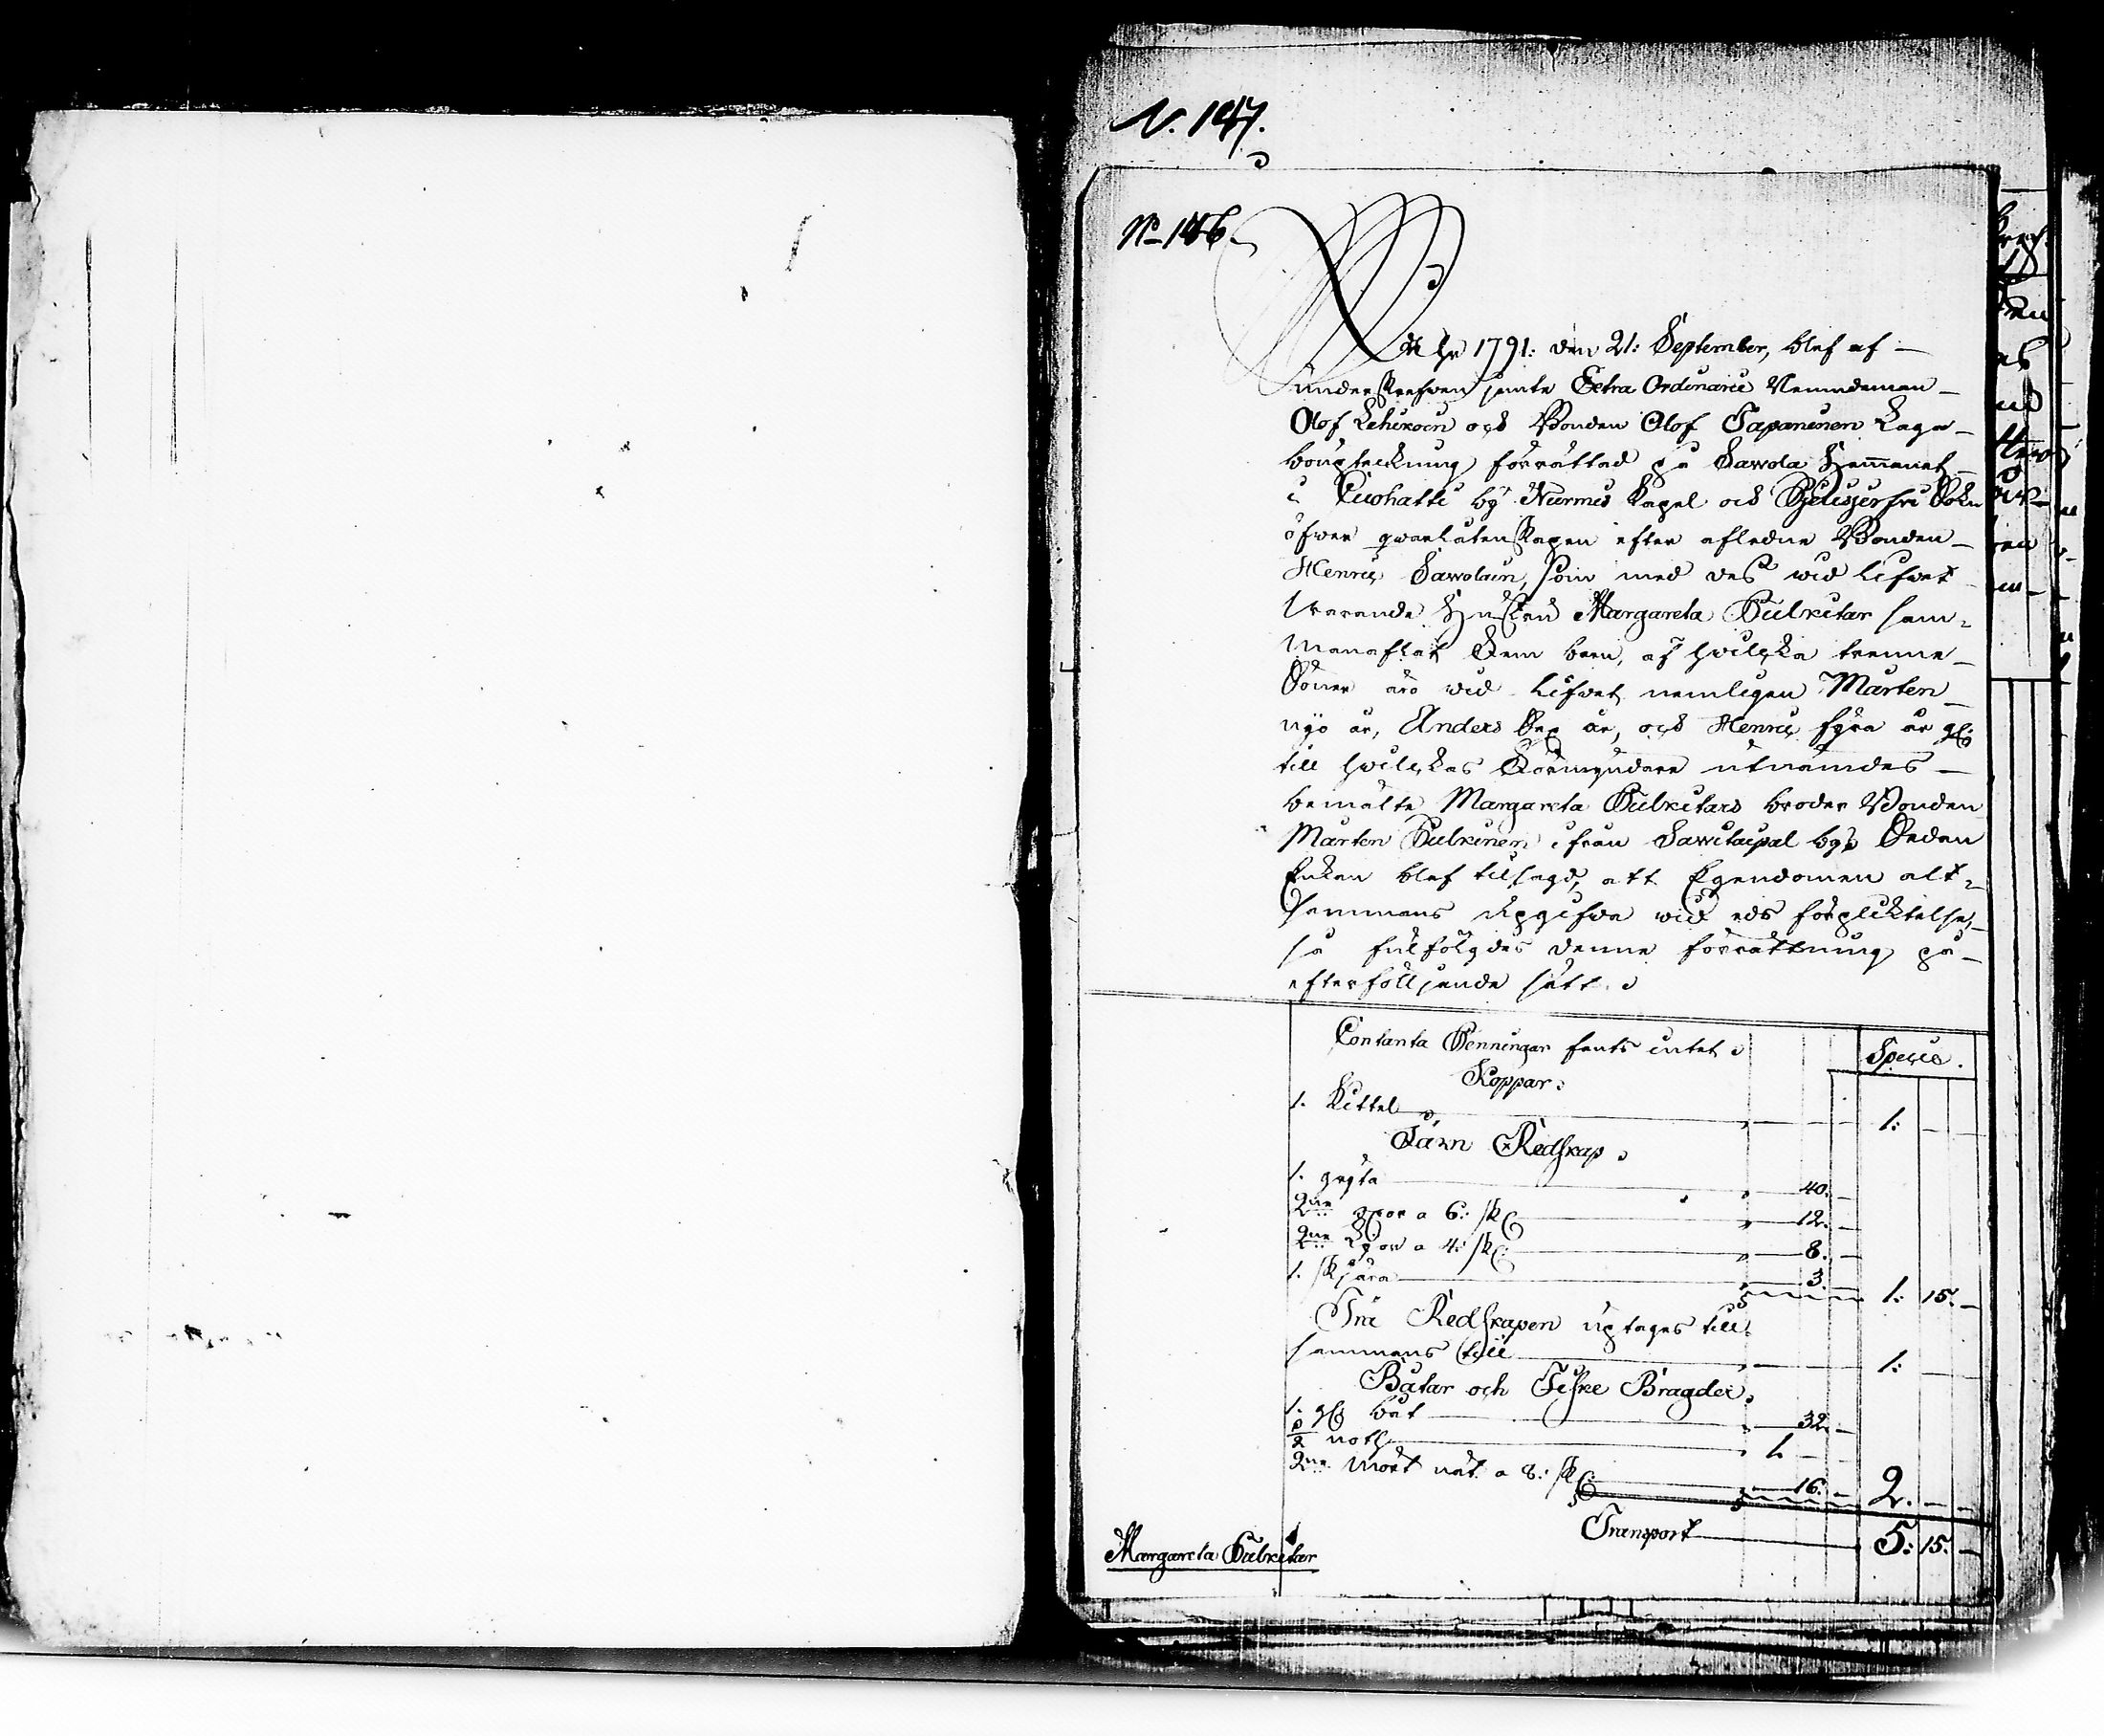 N. 147.
No 146.
Åhr 1791: den 21: September, blef af
underskrefwen jemte Extra Ordinarie Nemndeman
Olof Lehikoin och Bonden Olof Tapaninen Laga
bouptecknung förrättad på Sawola Hemmanet
i Kuohatti by Nurmis Kapel och Pjelisjerfwi Sokn
öfwer qwarlåtenskapen efter afledne Bonden
Henric Sawolain, som med des wid lifwet
warande Hustru Margareta Pulkitar sam=
manaflat Fem barn, af hwilcka trenne
Söner äro wid lifwet nemligen Mårten
nijo år, Anders Sex år, och Henric fyra år gl:
till hwilckas Förmyndare utnämdes
bemälte Margareta Pulkitars broder Bonden
Mårten Pulkinen ifrån Sawitaipal by, Sedan
Enkan blef tilsagd, att Egendomen alt=
sammans upgifwa wid eds förplicktelse,
så fulfölgdes denne förrättning på
efterfölljande sätt.
Contanta Penningar fants intet
Specie.
Koppar.
1. Kittel 1:
Järn Redskap.
1. gryta 40.
2ne yxor a 6: sk 12.
2ne a 4: sk: 8.
1. skjära 3. 1: 15.
Trä Redskapen uptages till
sammans till 1:
Båtar och Fiske Bragder.
1. gl: båt 32.
1/2 noth 1.
2ne mört nät a 8: sk: 16. 2.
Transport 5: 15.
Margareta Pulkitar